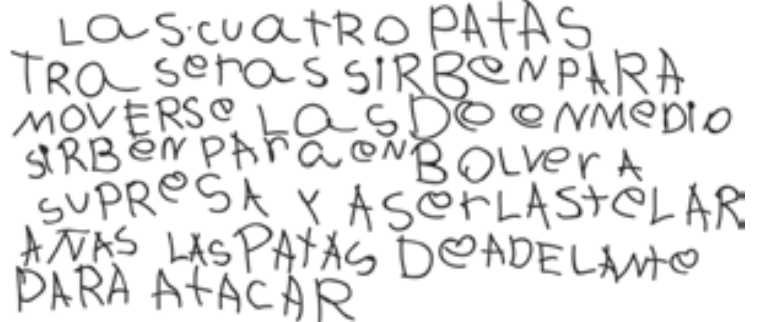 Las.cuatro PAtAS
TRa seras SIRBeN PARA
MOVERSe Las De eNMeDio
SIRBeN PAra eNBOLVer A
SUPReSA Y ASerLAStELAR
AÑAS LAS PAtAS DeADELANte
PARA AtACAR